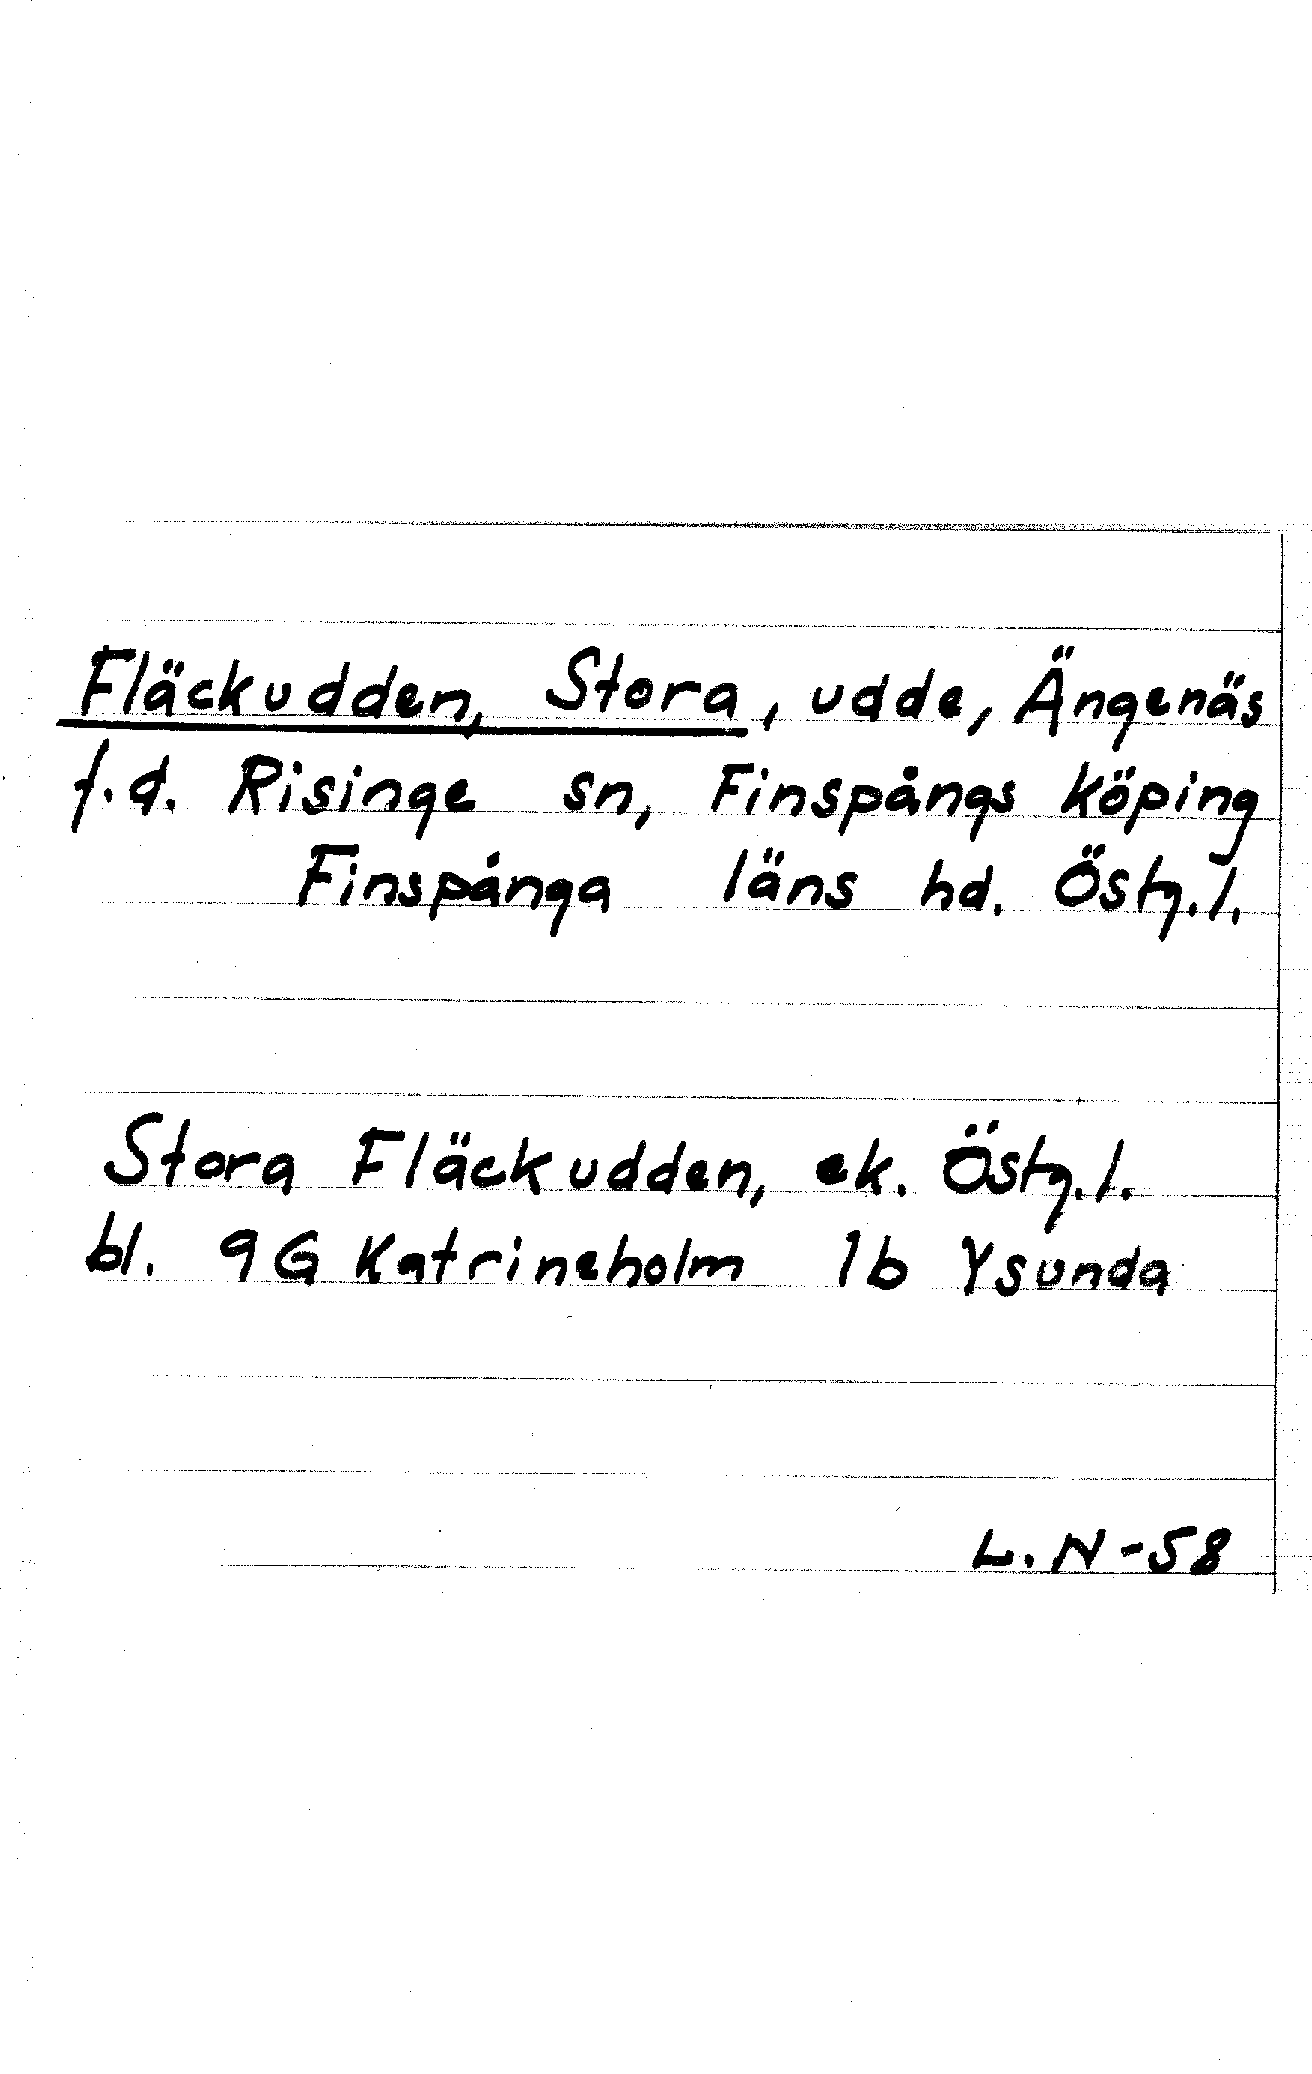 Fläckudden, Stora, udde, Ängenäs
f.d. Risinge sn, Finspångs köping
Finspånga läns hd. Östg.l.
Stora Fläckudden, ek. Östg.l.
bl. 9G Katrineholm 1b Ysunda
L.N-58